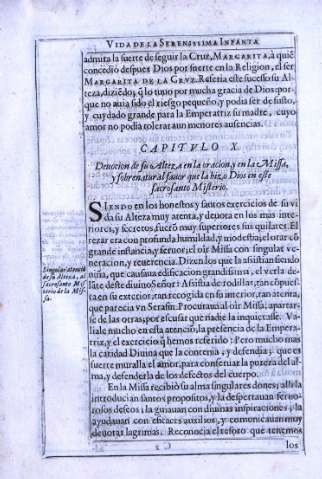 VIDA DE LA SERENISSIMA INFANTA
admita la suerte de seguir la Cruz, MARGARITA, à quiē
concediò despues Dios por suerte en la Religion, el ser
MARGARITA DE LA CRVZ. Referia este sucesso su Al-
teza, diziēdo, q̄ lo tuvo por mucha gracia de Dios por-
que no auia sido el riesgo pequeño, y podia ser de susto,
y cuydado grande para la Emperatriz su madre, cuyo
amor no podia tolerar aun menores ausencias.
CAPITVLO X.
Deuocion de su Alteza en la oracion, y en la Missa,
y sobrenatural fauor que la hizo Dios en este
sacrosanto Misterio.
SIENDO en los honestos y santos exercicios de su vi-
da su Alteza muy atenta, y deuota en los mas inte-
riores, y secretos fueró muy superiores sus quilates. El
rezar era con profunda humildad, y modestia; el orar có
grande instancia, y feruor; el oir Missa con singular ve-
neracion, y reuerencia. Dizen los que la assistian siendo
niña, que causaua edificacion grandissima, el verla de-
lāte deste diuino Señor: Assistia de rodillas, tan cōpues-
ta en su exterior, tan recogida en su interior, tan atenta,
que parecia vn Serafin. Procuraua al oir Missa, apartar-
se de las otras, por escusar que nadie la inquietasse. Va-
liale mucho en esta atenciò, la presencia de la Empera-
triz, y el exercicio q̄ hemos referido: Pero mucho mas
la caridad Diuina que la contenia, y defendia; que es
fuerte muralla el amor, para conseruar la pureza del al-
ma, y defenderla de los defectos del cuerpo.
Singular atenciō
de su Alteza, al
sacrosanto Mis-
terio de la Mis-
sa.
En la Missa recibiò su alma singulares dones; alli la
introducian santos propositos, y la despertauan feruo-
rosos deseos: la guiauan con diuinas inspiraciones; la
ayudauan con eficaces auxilios, y comunicauan muy
deuotas lagrimas. Reconocia el tesoro que tenemos
los